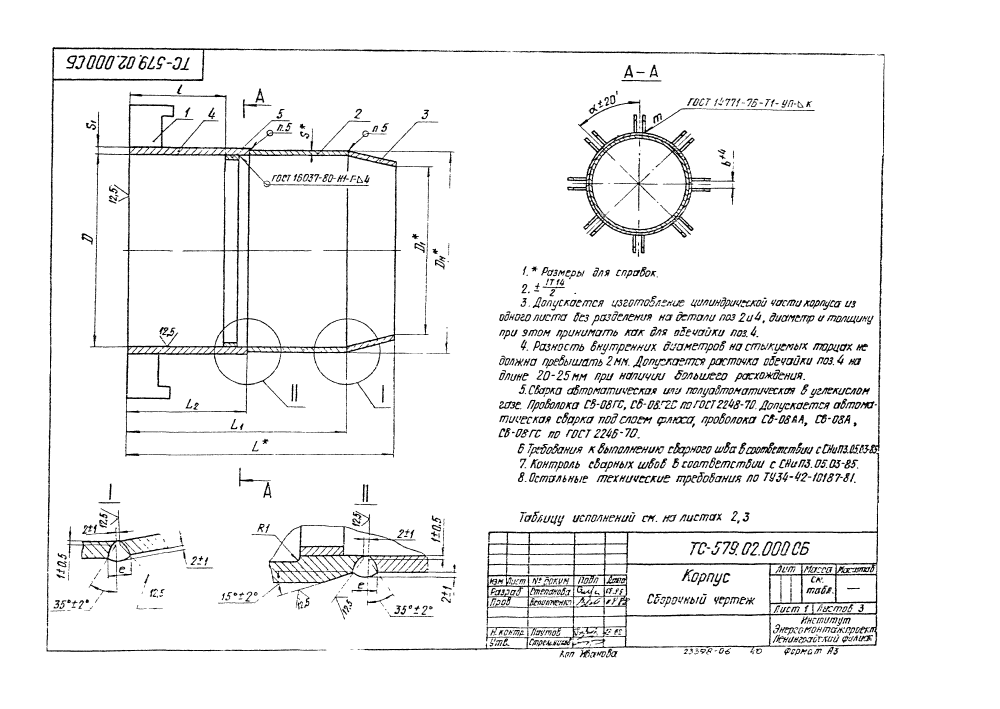 ТС-579.02.000СБ
l
А
А-А
1
4
5
п.5
S*
2
п.5
3
S1
α±20'
ГОСТ 14771-76-Т1-УП-⊿к
m
b±4
ГОСТ 16037-80-Н1-Г-⊿4
12,5
D
D1*
Dн*
12,5
II
I
L2
L1
L*
А
1.* Размеры для справок.
2. ± IT14/2 .
3. Допускается изготовление цилиндрической части корпуса из
одного листа без разделения на детали поз 2 и 4, диаметр и толщину
при этом принимать как для обечайки поз. 4.
4. Разность внутренних диаметров на стыкуемых торцах не
должна превышать 2мм. Допускается расточка обечайки поз. 4 на
длине 20-25мм при наличии большего расхождения.
5. Сварка автоматическая или полуавтоматическая в углекислом
газе. Проволока СВ-08ГС, СВ-08Г2С по ГОСТ 2248-70. Допускается автома-
тическая сварка под слоем флюса, проволока СВ-08АА, СВ-08А,
СВ-08ГС по ГОСТ 2246-70.
6 Требования к выполнению сварного шва в соответствии с СНиП3.05.03-85.
7. Контроль сварных швов в соответствии с СНиП3.05.03-85.
8. Остальные технические требования по ТУ34-42-10187-81.
Таблицу исполнений см. на листах 2,3
I
12,5
2±1
1±0,5
e
2±1
35°±2°
12,5
II
R1
12,5
2±1
1±0,5
15°±2°
12,5
12,5
e
35°±2°
2±1
ТС-579.02.000 СБ
Изм Лист № докум. Подп Дата
Разраб Степанова
Пров
Н.контр. Паутов
Утв.
Корпус
Сборочный чертеж
Лит Масса Масштаб
см. табл. —
Лист 1 Листов 3
Институт
Энергомонтажпроект
Ленинградский филиал
Коп Иванова 23398-06 40 Формат А3